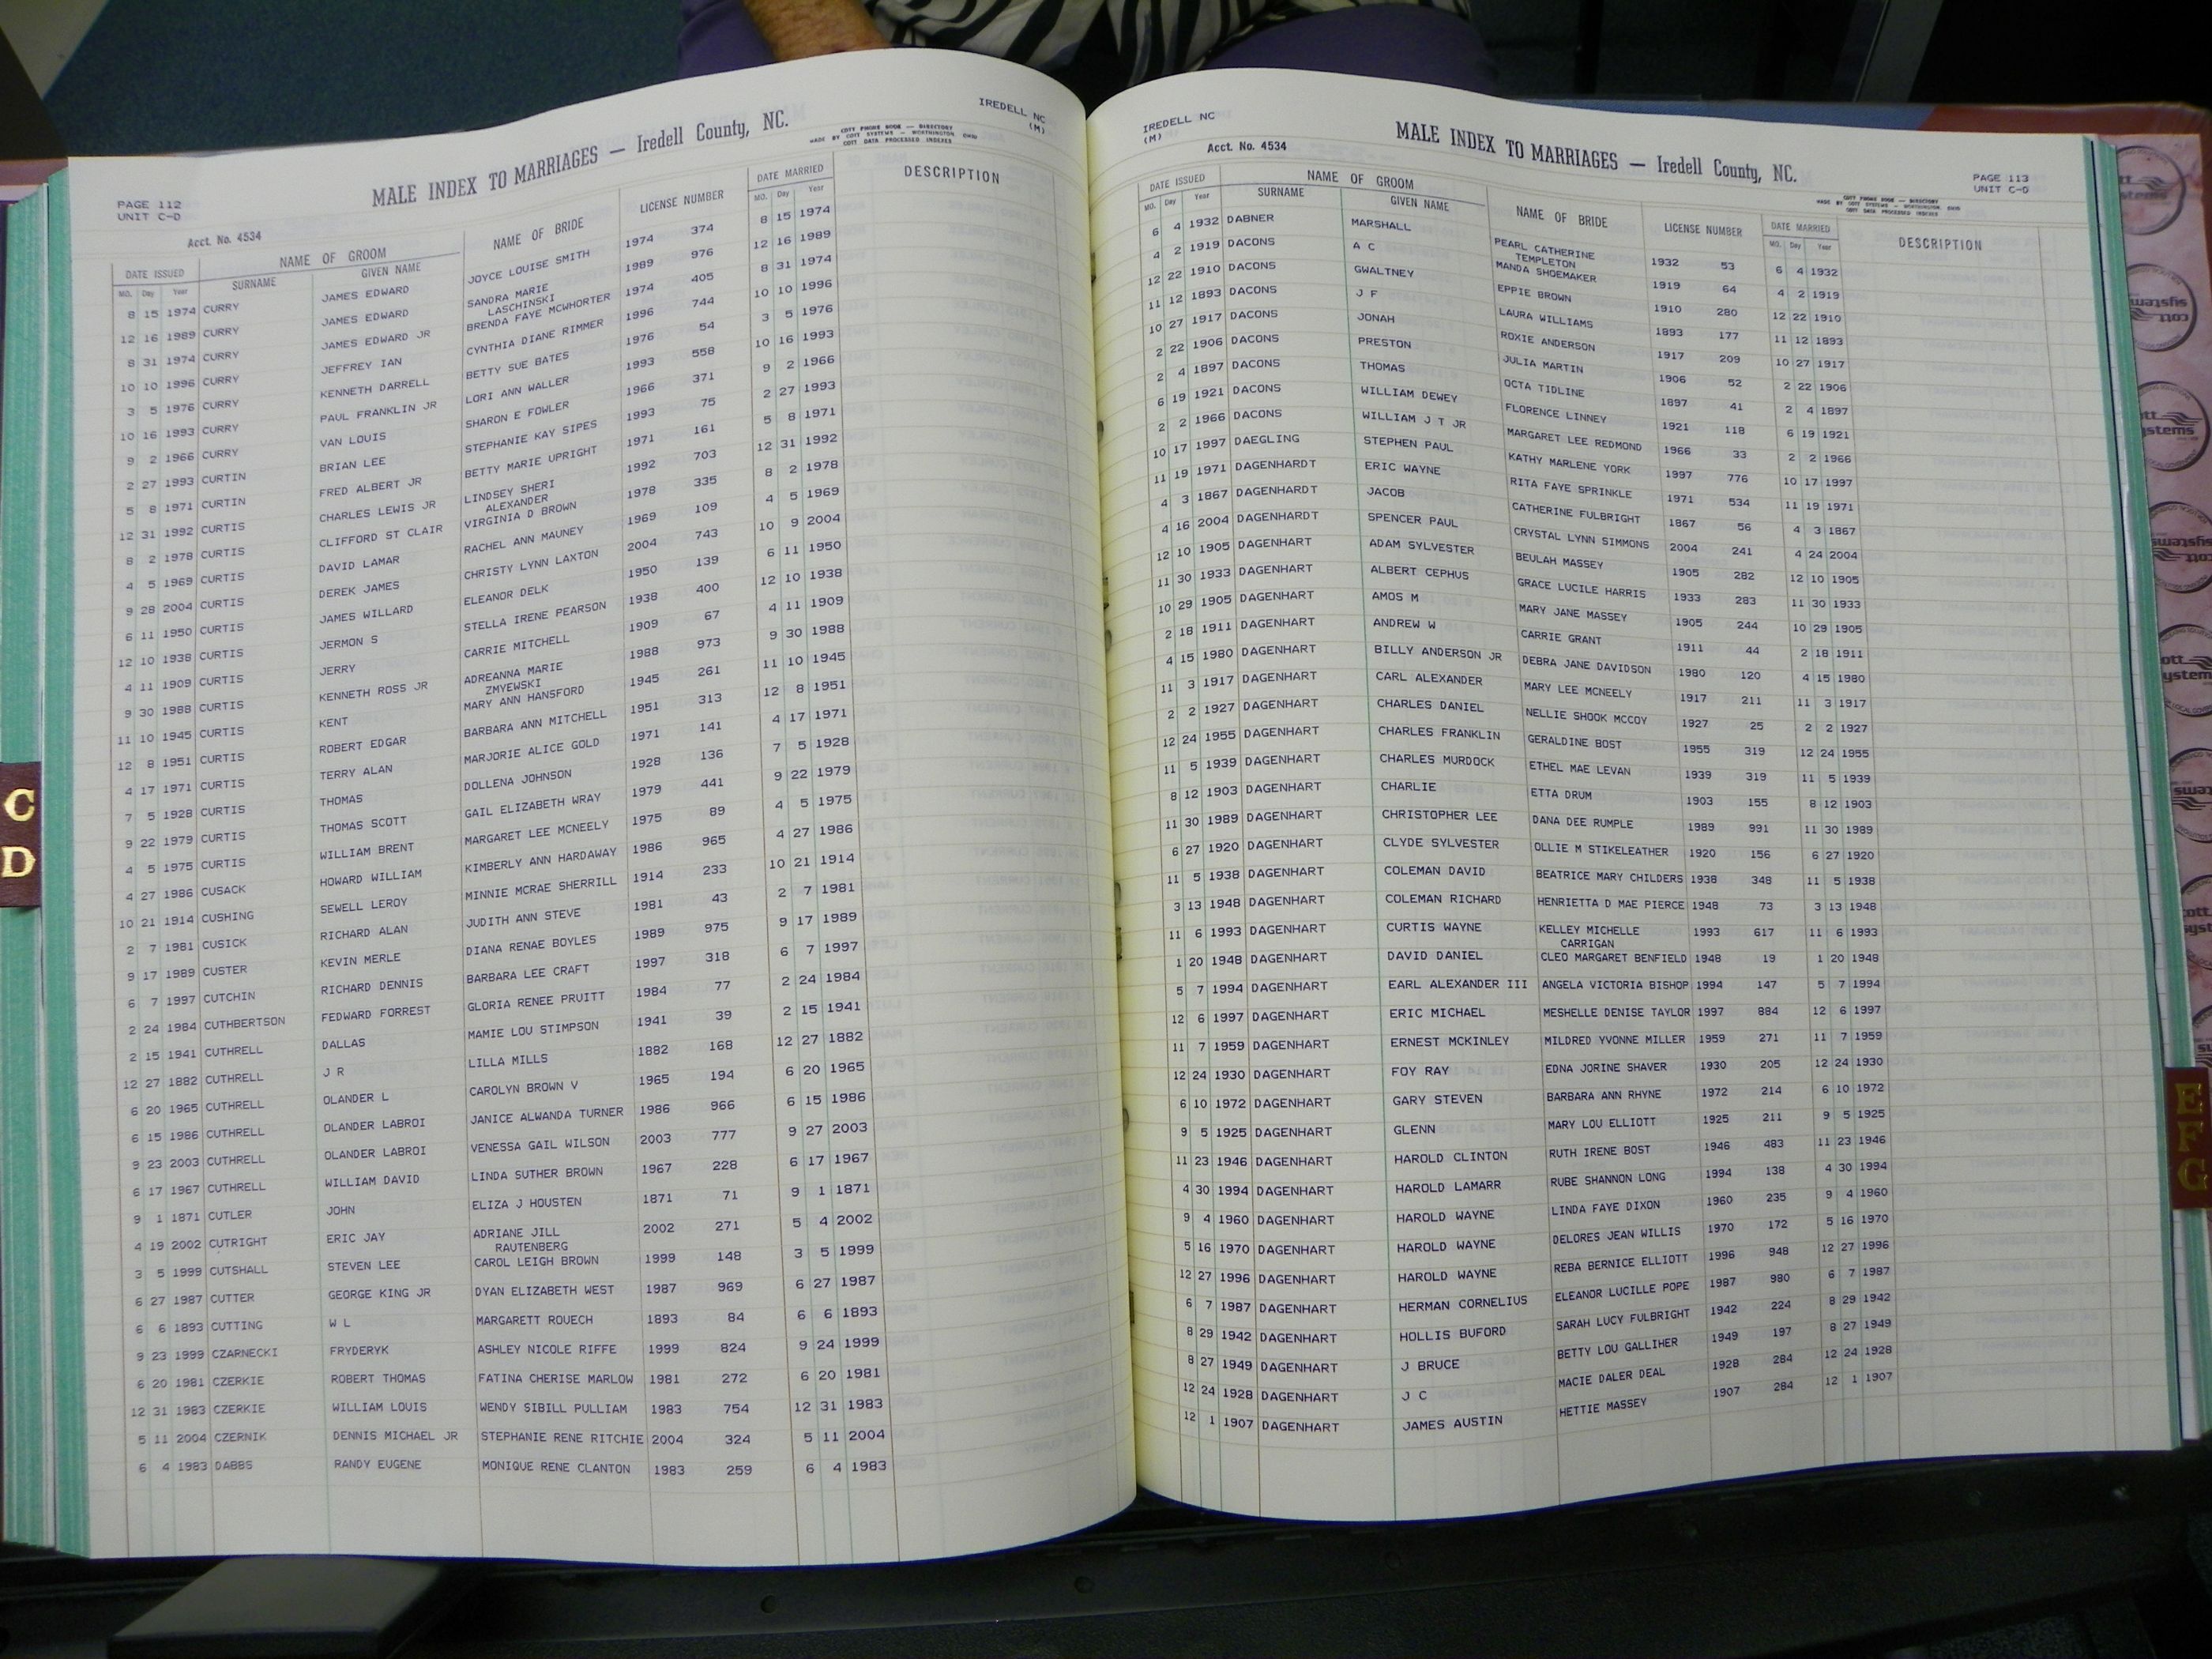 IREDELL NC
(M)
MALE INDEX TO MARRIAGES — Iredell County, NC.
COTT PHONE BOOK — DIRECTORY
MADE BY COTT SYSTEMS — WORTHINGTON OHIO
COTT DATA PROCESSED INDEXES
PAGE 112
UNIT C-D
Acct. No. 4534
DATE ISSUED NAME OF GROOM NAME OF BRIDE LICENSE NUMBER DATE MARRIED DESCRIPTION
MO. Day Year SURNAME GIVEN NAME MO. Day Year
8 15 1974 CURRY JAMES EDWARD JOYCE LOUISE SMITH 1974 374 8 15 1974
12 16 1989 CURRY JAMES EDWARD SANDRA MARIE LASCHINSKI 1989 976 12 16 1989
8 31 1974 CURRY JAMES EDWARD JR BRENDA FAYE MCWHORTER 1974 405 8 31 1974
10 10 1996 CURRY JEFFREY IAN CYNTHIA DIANE RIMMER 1996 744 10 10 1996
3 5 1976 CURRY KENNETH DARRELL BETTY SUE BATES 1976 54 3 5 1976
10 16 1993 CURRY PAUL FRANKLIN JR LORI ANN WALLER 1993 558 10 16 1993
9 2 1966 CURRY VAN LOUIS SHARON E FOWLER 1966 371 9 2 1966
2 27 1993 CURTIN BRIAN LEE STEPHANIE KAY SIPES 1993 75 2 27 1993
5 8 1971 CURTIN FRED ALBERT JR BETTY MARIE UPRIGHT 1971 161 5 8 1971
12 31 1992 CURTIS CHARLES LEWIS JR LINDSEY SHERI ALEXANDER 1992 703 12 31 1992
8 2 1978 CURTIS CLIFFORD ST CLAIR VIRGINIA D BROWN 1978 335 8 2 1978
4 5 1969 CURTIS DAVID LAMAR RACHEL ANN MAUNEY 1969 109 4 5 1969
9 28 2004 CURTIS DEREK JAMES CHRISTY LYNN LAXTON 2004 743 10 9 2004
6 11 1950 CURTIS JAMES WILLARD ELEANOR DELK 1950 139 6 11 1950
12 10 1938 CURTIS JERMON S STELLA IRENE PEARSON 1938 400 12 10 1938
4 11 1909 CURTIS JERRY CARRIE MITCHELL 1909 67 4 11 1909
9 30 1988 CURTIS KENNETH ROSS JR ADREANNA MARIE ZMYEWSKI 1988 973 9 30 1988
11 10 1945 CURTIS KENT MARY ANN HANSFORD 1945 261 11 10 1945
12 8 1951 CURTIS ROBERT EDGAR BARBARA ANN MITCHELL 1951 313 12 8 1951
4 17 1971 CURTIS TERRY ALAN MARJORIE ALICE GOLD 1971 141 4 17 1971
7 5 1928 CURTIS THOMAS DOLLENA JOHNSON 1928 136 7 5 1928
9 22 1979 CURTIS THOMAS SCOTT GAIL ELIZABETH WRAY 1979 441 9 22 1979
4 5 1975 CURTIS WILLIAM BRENT MARGARET LEE MCNEELY 1975 89 4 5 1975
4 27 1986 CUSACK HOWARD WILLIAM KIMBERLY ANN HARDAWAY 1986 965 4 27 1986
10 21 1914 CUSHING SEWELL LEROY MINNIE MCRAE SHERRILL 1914 233 10 21 1914
2 7 1981 CUSICK RICHARD ALAN JUDITH ANN STEVE 1981 43 2 7 1981
9 17 1989 CUSTER KEVIN MERLE DIANA RENAE BOYLES 1989 975 9 17 1989
6 7 1997 CUTCHIN RICHARD DENNIS BARBARA LEE CRAFT 1997 318 6 7 1997
2 24 1984 CUTHBERTSON FEDWARD FORREST GLORIA RENEE PRUITT 1984 77 2 24 1984
2 15 1941 CUTHRELL DALLAS MAMIE LOU STIMPSON 1941 39 2 15 1941
12 27 1882 CUTHRELL J R LILLA MILLS 1882 168 12 27 1882
6 20 1965 CUTHRELL OLANDER L CAROLYN BROWN V 1965 194 6 20 1965
6 15 1986 CUTHRELL OLANDER LABROI JANICE ALWANDA TURNER 1986 966 6 15 1986
9 23 2003 CUTHRELL OLANDER LABROI VENESSA GAIL WILSON 2003 777 9 27 2003
6 17 1967 CUTHRELL WILLIAM DAVID LINDA SUTHER BROWN 1967 228 6 17 1967
9 1 1871 CUTLER JOHN ELIZA J HOUSTEN 1871 71 9 1 1871
4 19 2002 CUTRIGHT ERIC JAY ADRIANE JILL RAUTENBERG 2002 271 5 4 2002
3 5 1999 CUTSHALL STEVEN LEE CAROL LEIGH BROWN 1999 148 3 5 1999
6 27 1987 CUTTER GEORGE KING JR DYAN ELIZABETH WEST 1987 969 6 27 1987
6 6 1893 CUTTING W L MARGARETT ROUECH 1893 84 6 6 1893
9 23 1999 CZARNECKI FRYDERYK ASHLEY NICOLE RIFFE 1999 824 9 24 1999
6 20 1981 CZERKIE ROBERT THOMAS FATINA CHERISE MARLOW 1981 272 6 20 1981
12 31 1983 CZERKIE WILLIAM LOUIS WENDY SIBILL PULLIAM 1983 754 12 31 1983
5 11 2004 CZERNIK DENNIS MICHAEL JR STEPHANIE RENE RITCHIE 2004 324 5 11 2004
6 4 1983 DABBS RANDY EUGENE MONIQUE RENE CLANTON 1983 259 6 4 1983
C
D
IREDELL NC
(M)
Acct. No. 4534
MALE INDEX TO MARRIAGES — Iredell County, NC.
COTT PHONE BOOK — DIRECTORY
MADE BY COTT SYSTEMS — WORTHINGTON OHIO
COTT DATA PROCESSED INDEXES
PAGE 113
UNIT C-D
DATE ISSUED NAME OF GROOM NAME OF BRIDE LICENSE NUMBER DATE MARRIED DESCRIPTION
MO. Day Year SURNAME GIVEN NAME MO. Day Year
6 4 1932 DABNER MARSHALL PEARL CATHERINE TEMPLETON 1932 53 6 4 1932
4 2 1919 DACONS A C MANDA SHOEMAKER 1919 64 4 2 1919
12 22 1910 DACONS GWALTNEY EPPIE BROWN 1910 280 12 22 1910
11 12 1893 DACONS J F LAURA WILLIAMS 1893 177 11 12 1893
10 27 1917 DACONS JONAH ROXIE ANDERSON 1917 209 10 27 1917
2 22 1906 DACONS PRESTON JULIA MARTIN 1906 52 2 22 1906
2 4 1897 DACONS THOMAS OCTA TIDLINE 1897 41 2 4 1897
6 19 1921 DACONS WILLIAM DEWEY FLORENCE LINNEY 1921 118 6 19 1921
2 2 1966 DACONS WILLIAM J T JR MARGARET LEE REDMOND 1966 33 2 2 1966
10 17 1997 DAEGLING STEPHEN PAUL KATHY MARLENE YORK 1997 776 10 17 1997
11 19 1971 DAGENHARDT ERIC WAYNE RITA FAYE SPRINKLE 1971 534 11 19 1971
4 3 1867 DAGENHARDT JACOB CATHERINE FULBRIGHT 1867 56 4 3 1867
4 16 2004 DAGENHARDT SPENCER PAUL CRYSTAL LYNN SIMMONS 2004 241 4 24 2004
12 10 1905 DAGENHART ADAM SYLVESTER BEULAH MASSEY 1905 282 12 10 1905
11 30 1933 DAGENHART ALBERT CEPHUS GRACE LUCILE HARRIS 1933 283 11 30 1933
10 29 1905 DAGENHART AMOS M MARY JANE MASSEY 1905 244 10 29 1905
2 18 1911 DAGENHART ANDREW W CARRIE GRANT 1911 44 2 18 1911
4 15 1980 DAGENHART BILLY ANDERSON JR DEBRA JANE DAVIDSON 1980 120 4 15 1980
11 3 1917 DAGENHART CARL ALEXANDER MARY LEE MCNEELY 1917 211 11 3 1917
2 2 1927 DAGENHART CHARLES DANIEL NELLIE SHOOK MCCOY 1927 25 2 2 1927
12 24 1955 DAGENHART CHARLES FRANKLIN GERALDINE BOST 1955 319 12 24 1955
11 5 1939 DAGENHART CHARLES MURDOCK ETHEL MAE LEVAN 1939 319 11 5 1939
8 12 1903 DAGENHART CHARLIE ETTA DRUM 1903 155 8 12 1903
11 30 1989 DAGENHART CHRISTOPHER LEE DANA DEE RUMPLE 1989 991 11 30 1989
6 27 1920 DAGENHART CLYDE SYLVESTER OLLIE M STIKELEATHER 1920 156 6 27 1920
11 5 1938 DAGENHART COLEMAN DAVID BEATRICE MARY CHILDERS 1938 348 11 5 1938
3 13 1948 DAGENHART COLEMAN RICHARD HENRIETTA D MAE PIERCE 1948 73 3 13 1948
11 6 1993 DAGENHART CURTIS WAYNE KELLEY MICHELLE CARRIGAN 1993 617 11 6 1993
1 20 1948 DAGENHART DAVID DANIEL CLEO MARGARET BENFIELD 1948 19 1 20 1948
5 7 1994 DAGENHART EARL ALEXANDER III ANGELA VICTORIA BISHOP 1994 147 5 7 1994
12 6 1997 DAGENHART ERIC MICHAEL MESHELLE DENISE TAYLOR 1997 884 12 6 1997
11 7 1959 DAGENHART ERNEST MCKINLEY MILDRED YVONNE MILLER 1959 271 11 7 1959
12 24 1930 DAGENHART FOY RAY EDNA JORINE SHAVER 1930 205 12 24 1930
6 10 1972 DAGENHART GARY STEVEN BARBARA ANN RHYNE 1972 214 6 10 1972
9 5 1925 DAGENHART GLENN MARY LOU ELLIOTT 1925 211 9 5 1925
11 23 1946 DAGENHART HAROLD CLINTON RUTH IRENE BOST 1946 483 11 23 1946
4 30 1994 DAGENHART HAROLD LAMARR RUBE SHANNON LONG 1994 138 4 30 1994
9 4 1960 DAGENHART HAROLD WAYNE LINDA FAYE DIXON 1960 235 9 4 1960
5 16 1970 DAGENHART HAROLD WAYNE DELORES JEAN WILLIS 1970 172 5 16 1970
12 27 1996 DAGENHART HAROLD WAYNE REBA BERNICE ELLIOTT 1996 948 12 27 1996
6 7 1987 DAGENHART HERMAN CORNELIUS ELEANOR LUCILLE POPE 1987 980 6 7 1987
8 29 1942 DAGENHART HOLLIS BUFORD SARAH LUCY FULBRIGHT 1942 224 8 29 1942
8 27 1949 DAGENHART J BRUCE BETTY LOU GALLIHER 1949 197 8 27 1949
12 24 1928 DAGENHART J C MACIE DALER DEAL 1928 284 12 24 1928
12 1 1907 DAGENHART JAMES AUSTIN HETTIE MASSEY 1907 284 12 1 1907
E
F
G